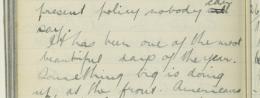 present policy nobody can
say.
It has been one of the most
beautiful days of the year.
Something big is doing
up, at the front. Americans